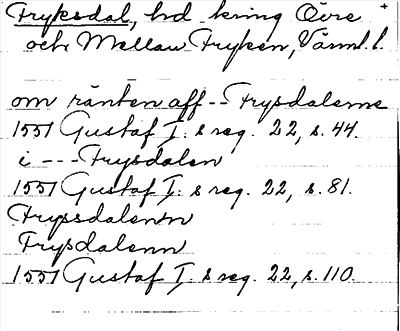 Fryksdal, hd kring Övre +
och Mellan Fryken, Värml. l.
om ränten aff -- Frysdalerne
1551 Gustaf I:s reg. 22, s. 44.
i --- Frysdalen
1551 Gustaf I:s reg. 22, s. 81.
Fryssdalenn
Frysdalenn
1551 Gustaf I:s reg. 22, s. 110.